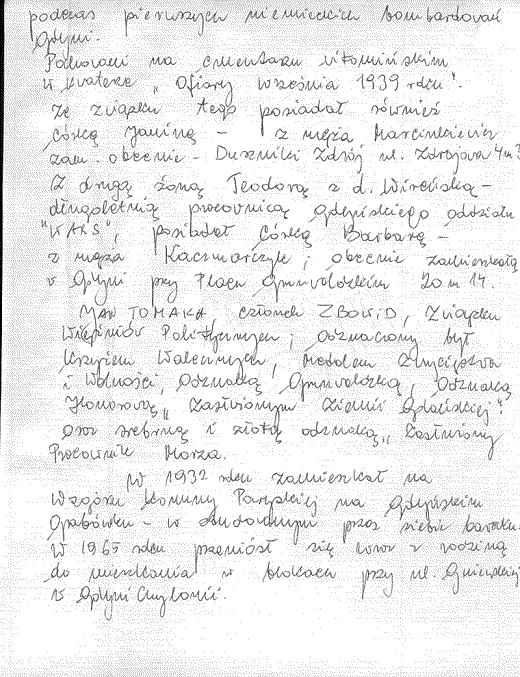 podczas pierwszych niemieckich bombardowań
Gdyni.
Pochowani na cmentarzu witomińskim
w kwaterze „Ofiary września 1939 roku".
Ze związku tego posiadał również
córkę Janinę – z męża Marcinkiewicz
zam. obecnie – Duszniki Zdrój ul. Zdrojowa 4 m
Z drugą żoną Teodorą z d. –
długoletnią pracownicą gdyńskiego oddziału
"WARS", posiadał córkę Barbarę –
z męża Kaczmarczyk; obecnie zamieszkałą
w Gdyni przy Placu Grunwaldzkim 20 m 14.
JAN TOMAKA, członek ZBOWiD, Związku
Więźniów Politycznych; odznaczony był
Krzyżem Walecznych, medalem Zwycięstwa
i Wolności, Odznaką Grunwaldzką, Odznaką
Honorową „Zasłużonym Ziemi Gdańskiej".
oraz srebrną i złotą odznaką „Zasłużony
Pracownik Morza.
W 1932 roku zamieszkał na
Wzgórzu Komuny Paryskiej na Gdyńskim
Grabówku – w zbudowanym przez siebie baraku.
W 1965 roku przeniósł się wraz z rodziną
do mieszkania w blokach przy ul. Gniewskiej
w Gdyni Chyloni.